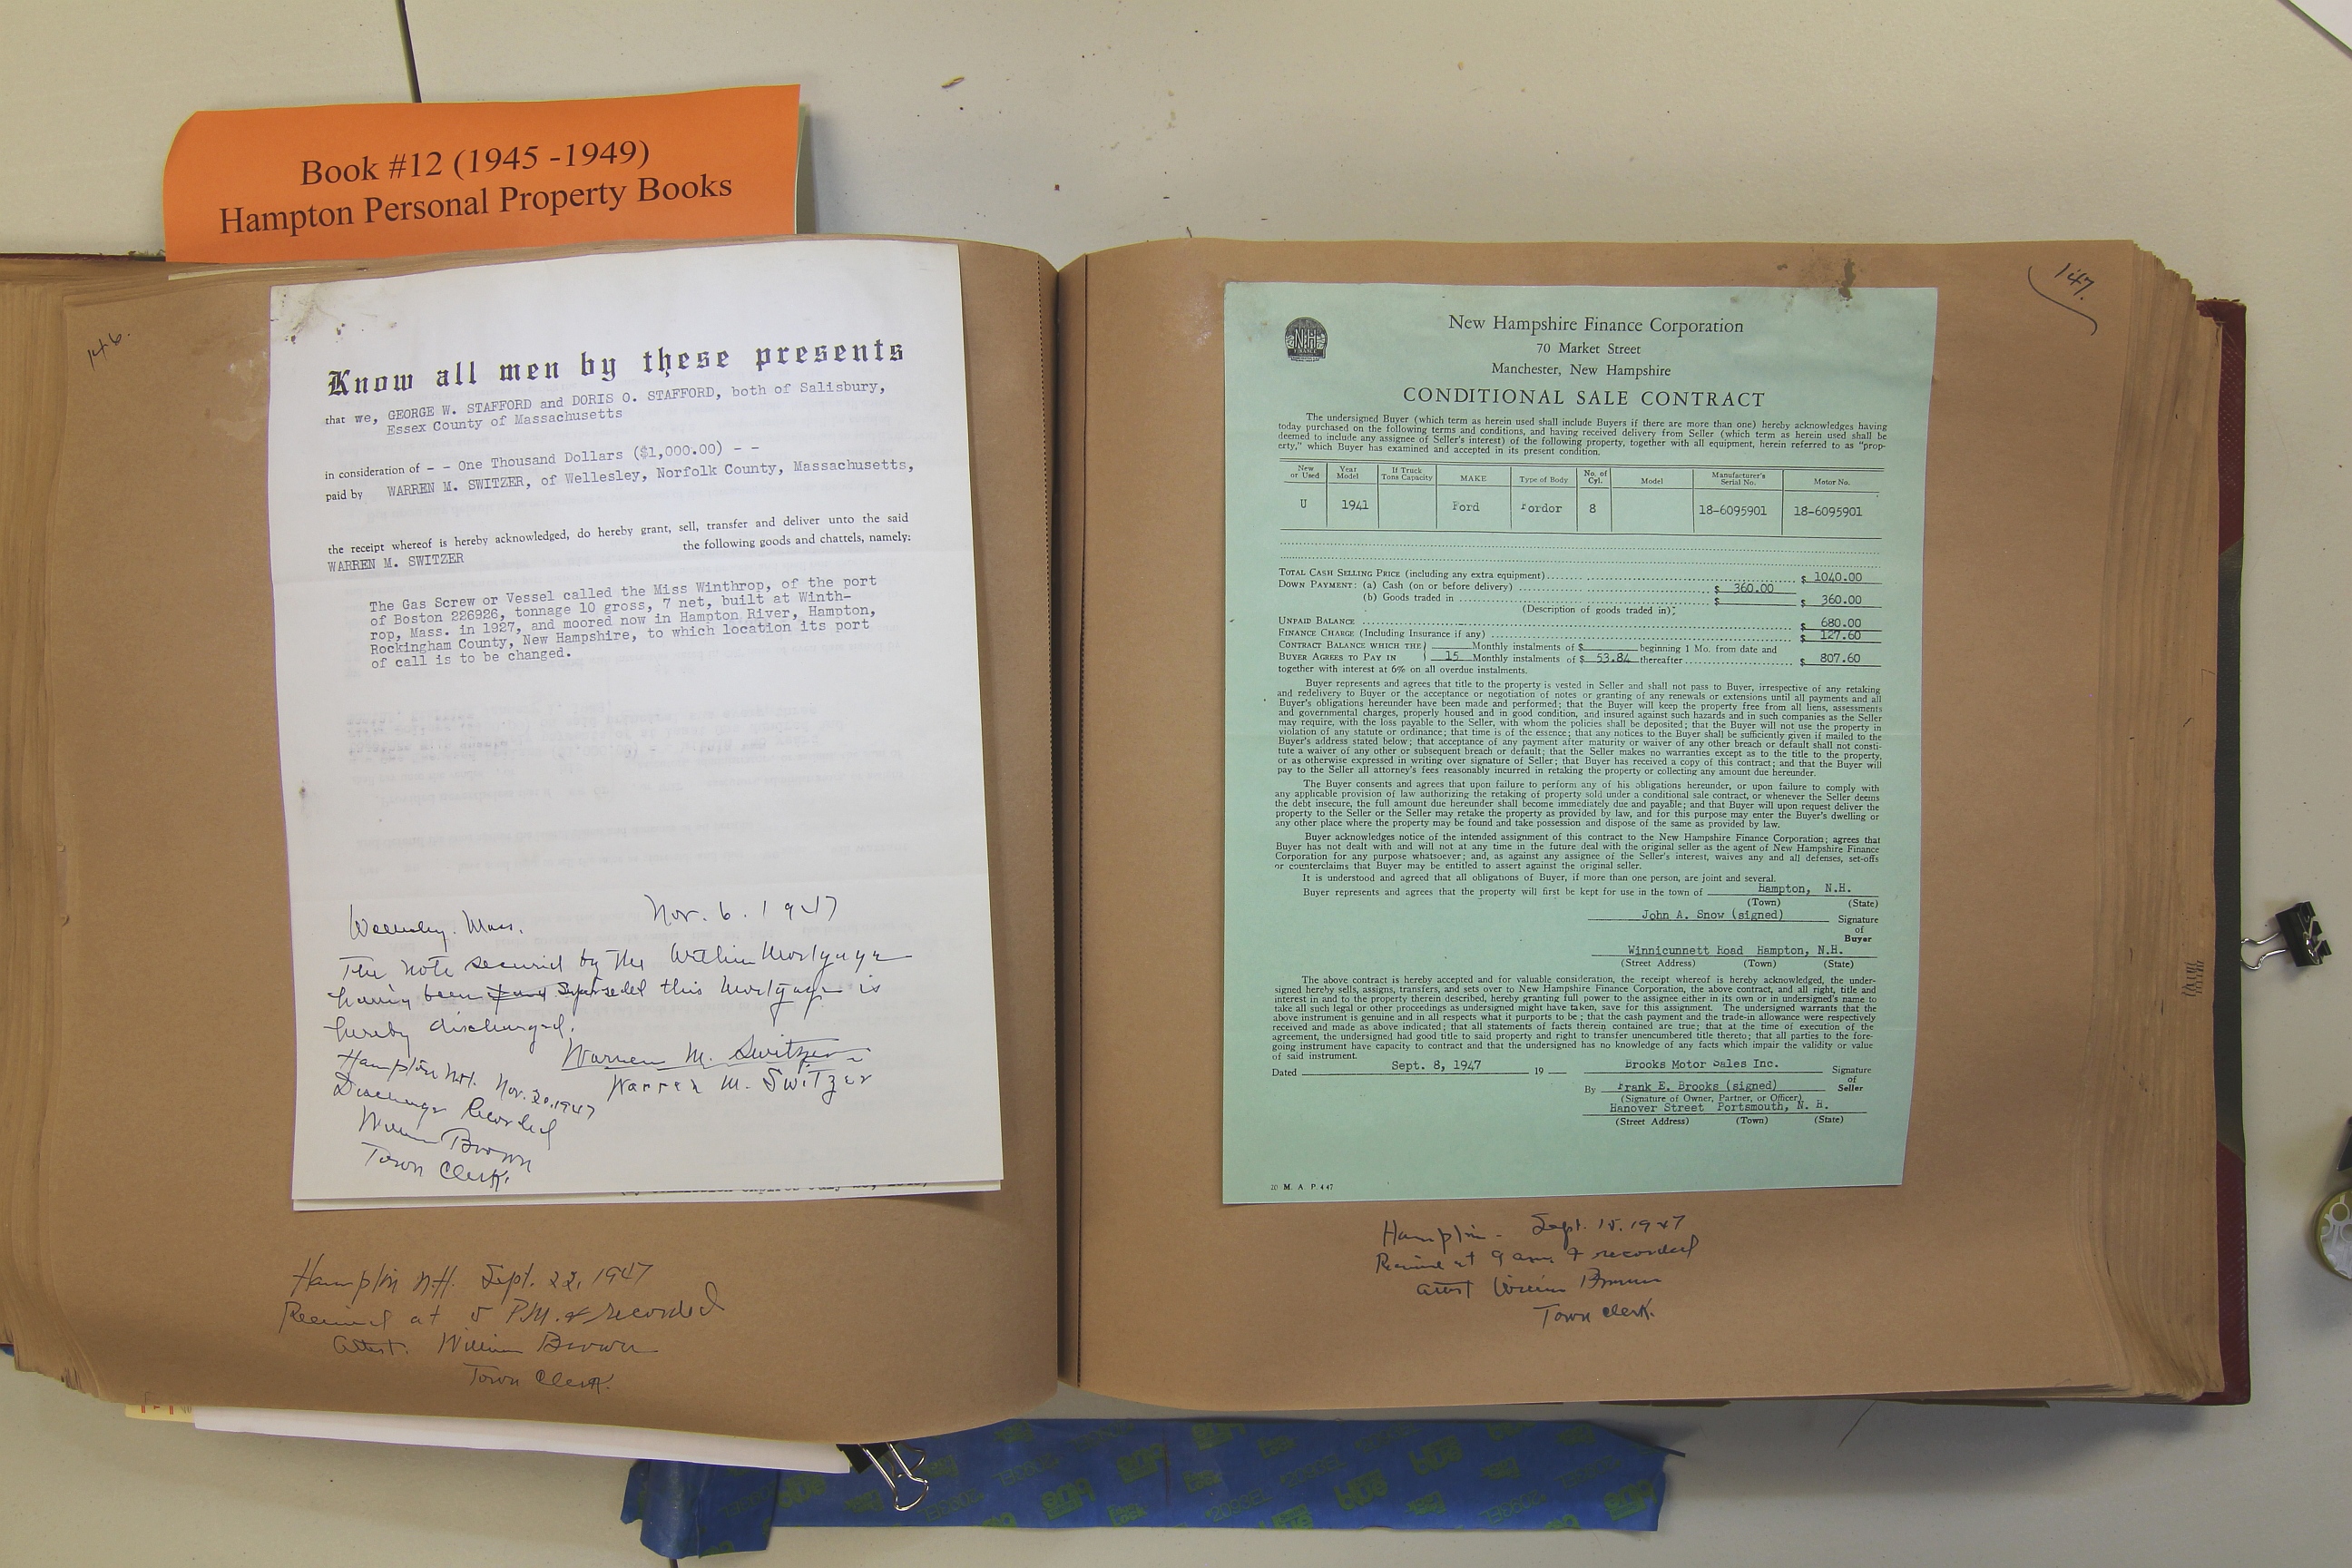 Book #12 (1945 -1949)
Hampton Personal Property Books
146.
Know all men by these presents
that we, GEORGE W. STAFFORD and DORIS O. STAFFORD, both of Salisbury,
Essex County of Massachusetts
in consideration of - - One Thousand Dollars ($1,000.00) - -
paid by WARREN M. SWITZER, of Wellesley, Norfolk County, Massachusetts,
the receipt whereof is hereby acknowledged, do hereby grant, sell, transfer and deliver unto the said
WARREN M. SWITZER the following goods and chattels, namely:
The Gas Screw or Vessel called the Miss Winthrop, of the port
of Boston 226926, tonnage 10 gross, 7 net, built at Winth-
rop, Mass. in 1927, and moored now in Hampton River, Hampton,
Rockingham County, New Hampshire, to which location its port
of call is to be changed.
Wellesley. Mass. Nov. 6. 1947
The note secured by the within Mortgage
having been superseded this mortgage is
hereby discharged.
Warren M. Switzer
Warren M. Switzer
Hampton N.H. Nov. 20, 1947
Discharge Recorded
William Brown
Town Clerk.
Hampton N.H. Sept. 22, 1947
Received at 5 P.M. & recorded
Attest. William Brown
Town Clerk.
147.
NH
FINANCE
New Hampshire Finance Corporation
70 Market Street
Manchester, New Hampshire
CONDITIONAL SALE CONTRACT
The undersigned Buyer (which term as herein used shall include Buyers if there are more than one) hereby acknowledges having
today purchased on the following terms and conditions, and having received delivery from Seller (which term as herein used shall be
deemed to include any assignee of Seller's interest) of the following property, together with all equipment, herein referred to as "prop-
erty," which Buyer has examined and accepted in its present condition.
New or Used Year Model If Truck Tons Capacity MAKE Type of Body No. of Cyl. Model Manufacturer's Serial No. Motor No.
U 1941 Ford Fordor 8 18-6095901 18-6095901
TOTAL CASH SELLING PRICE (including any extra equipment) $ 1040.00
DOWN PAYMENT: (a) Cash (on or before delivery) $ 360.00
(b) Goods traded in $ $ 360.00
(Description of goods traded in):
UNPAID BALANCE $ 680.00
FINANCE CHARGE (Including Insurance if any) $ 127.60
CONTRACT BALANCE WHICH THE Monthly instalments of $ beginning 1 Mo. from date and
BUYER AGREES TO PAY IN 15 Monthly instalments of $ 53.84 thereafter $ 807.60
together with interest at 6% on all overdue instalments.
Buyer represents and agrees that title to the property is vested in Seller and shall not pass to Buyer, irrespective of any retaking
and redelivery to Buyer or the acceptance or negotiation of notes or granting of any renewals or extensions until all payments and all
Buyer's obligations hereunder have been made and performed; that the Buyer will keep the property free from all liens, assessments
and governmental charges, properly housed and in good condition, and insured against such hazards and in such companies as the Seller
may require, with the loss payable to the Seller, with whom the policies shall be deposited; that the Buyer will not use the property in
violation of any statute or ordinance; that time is of the essence; that any notices to the Buyer shall be sufficiently given if mailed to the
Buyer's address stated below; that acceptance of any payment after maturity or waiver of any other breach or default shall not consti-
tute a waiver of any other or subsequent breach or default; that the Seller makes no warranties except as to the title to the property,
or as otherwise expressed in writing over signature of Seller; that Buyer has received a copy of this contract; and that the Buyer will
pay to the Seller all attorney's fees reasonably incurred in retaking the property or collecting any amount due hereunder.
The Buyer consents and agrees that upon failure to perform any of his obligations hereunder, or upon failure to comply with
any applicable provision of law authorizing the retaking of property sold under a conditional sale contract, or whenever the Seller deems
the debt insecure, the full amount due hereunder shall become immediately due and payable; and that Buyer will upon request deliver the
property to the Seller or the Seller may retake the property as provided by law, and for this purpose may enter the Buyer's dwelling or
any other place where the property may be found and take possession and dispose of the same as provided by law.
Buyer acknowledges notice of the intended assignment of this contract to the New Hampshire Finance Corporation; agrees that
Buyer has not dealt with and will not at any time in the future deal with the original seller as the agent of New Hampshire Finance
Corporation for any purpose whatsoever; and, as against any assignee of the Seller's interest, waives any and all defenses, set-offs
or counterclaims that Buyer may be entitled to assert against the original seller.
It is understood and agreed that all obligations of Buyer, if more than one person, are joint and several.
Buyer represents and agrees that the property will first be kept for use in the town of Hampton, N.H.
(Town) (State)
John A. Snow (signed) Signature of Buyer
Winnicunnett Road Hampton, N.H.
(Street Address) (Town) (State)
The above contract is hereby accepted and for valuable consideration, the receipt whereof is hereby acknowledged, the under-
signed hereby sells, assigns, transfers, and sets over to New Hampshire Finance Corporation, the above contract, and all right, title and
interest in and to the property therein described, hereby granting full power to the assignee either in its own or in undersigned's name to
take all such legal or other proceedings as undersigned might have taken, save for this assignment. The undersigned warrants that the
above instrument is genuine and in all respects what it purports to be; that the cash payment and the trade-in allowance were respectively
received and made as above indicated; that all statements of facts therein contained are true; that at the time of execution of the
agreement, the undersigned had good title to said property and right to transfer unencumbered title thereto; that all parties to the fore-
going instrument have capacity to contract and that the undersigned has no knowledge of any facts which impair the validity or value
of said instrument.
Dated Sept. 8, 1947 19 Brooks Motor Sales Inc. Signature of Seller
By Frank E. Brooks (signed)
(Signature of Owner, Partner, or Officer)
Hanover Street Portsmouth, N. H.
(Street Address) (Town) (State)
20 M. A. P. 4 47
Hampton - Sept. 15. 1947
Received at 9 am & recorded
Attest William Brown
Town Clerk.